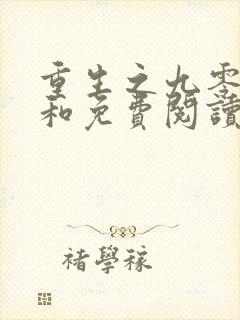 重生之九零
和免費閱讀
褚學稼